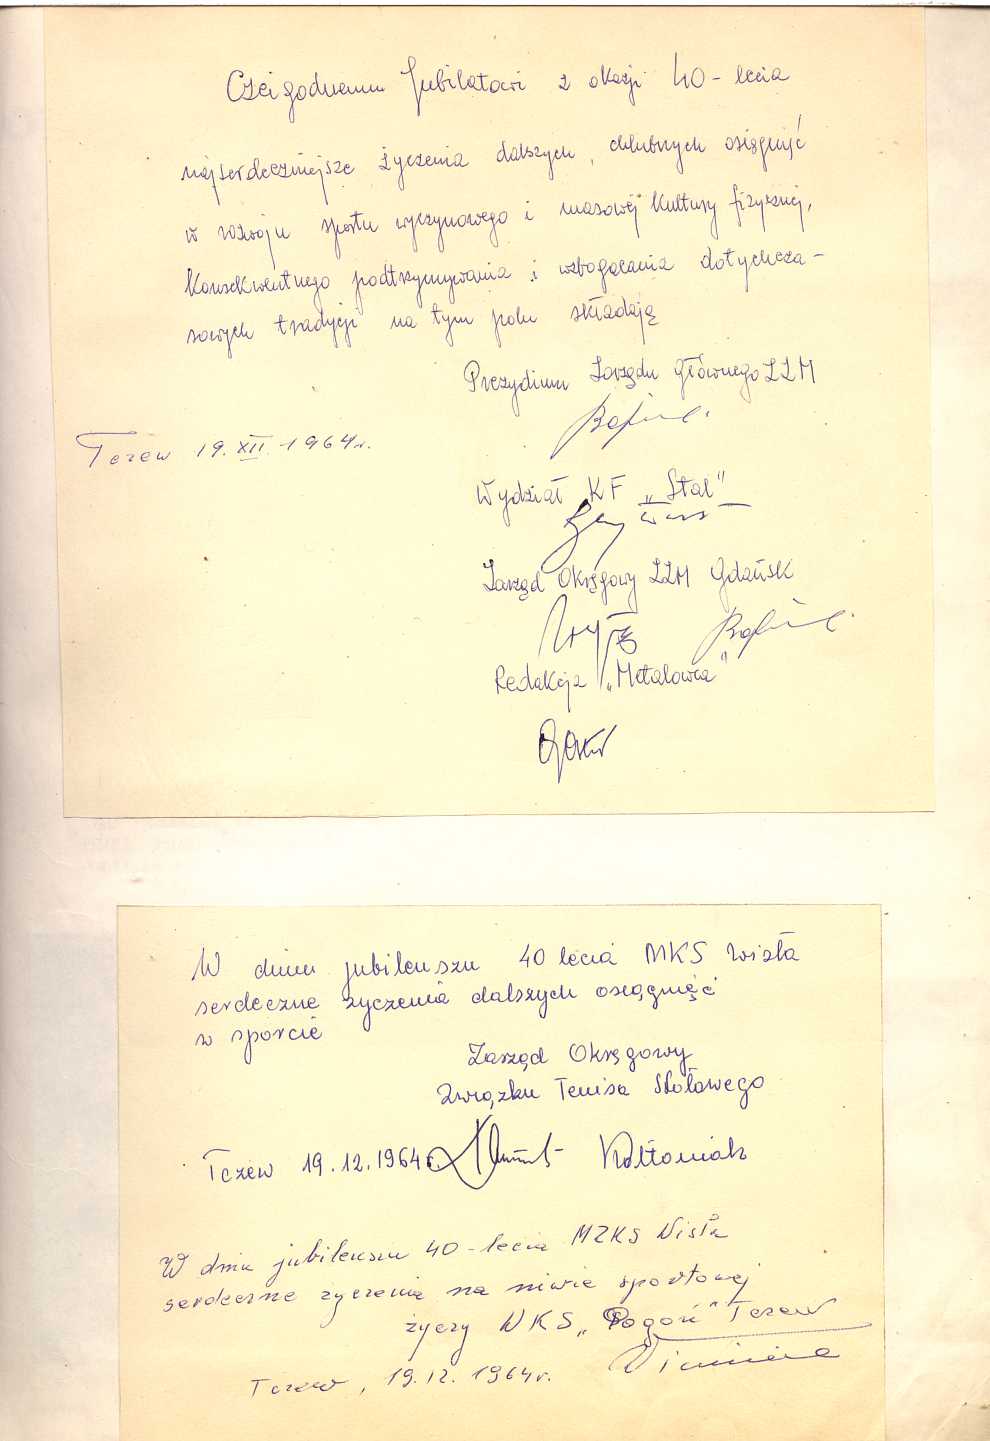 Czcigodnemu Jubilatowi z okazji 40-lecia
najserdeczniejsze życzenia dalszych, chlubnych osiągnięć
w rozwoju sportu wyczynowego i masowej kultury fizycznej,
konsekwentnego podtrzymywania i wzbogacania dotychcza-
sowych tradycji na tym polu składają
Prezydium Zarządu Głównego ZZM
Tczew 19.XII.1964r.
Wydział KF „Stal”
Zarząd Okręgowy ZZM Gdańsk
Redakcja „Metalowca”
W dniu jubileuszu 40 lecia MKS Wisła
serdeczne życzenia dalszych osiągnięć
w sporcie
Zarząd Okręgowy
Związku Tenisa Stołowego
Tczew 19.12.1964r. Kołtoniak
W dniu jubileuszu 40-lecia MZKS Wisła
serdeczne życzenia na niwie sportowej
życzy WKS „Pogoń” Tczew
Tczew, 19.12.1964r.